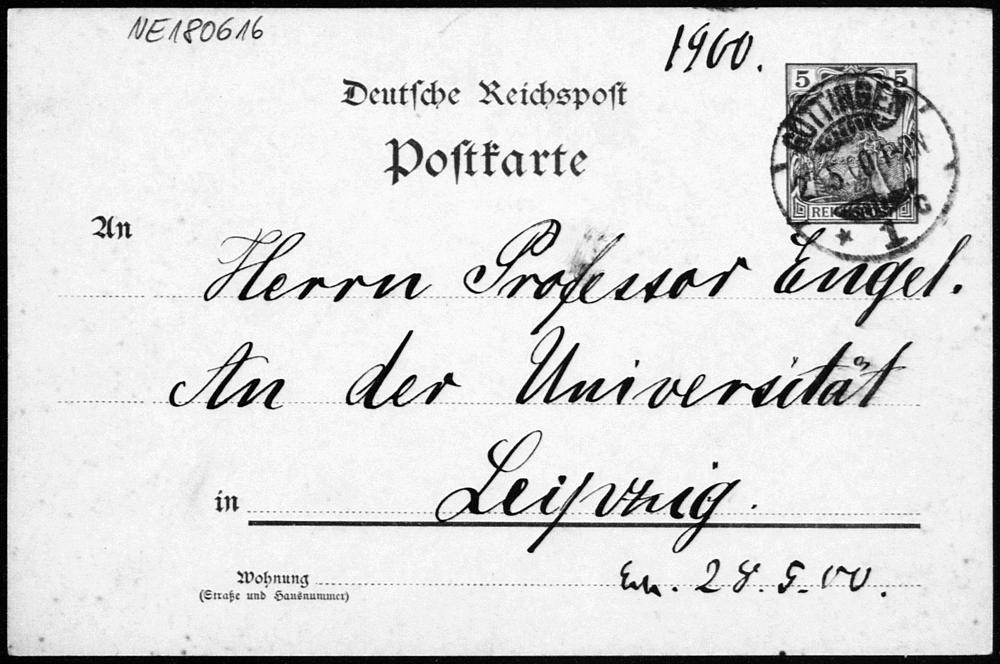 NE180616
1900.
Deutsche Reichspost
5 5
Postkarte
GÖTTINGEN
* 1 c
An
Herrn Professor Engel.
An der Universität
in Leipzig.
Wohnung
(Straße und Hausnummer)
28.5.00.